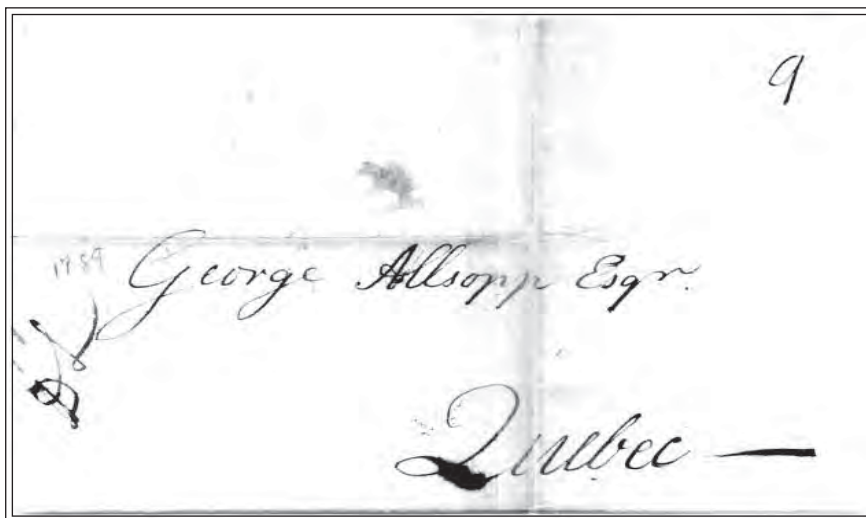 9
1789
George Allsopp Esqr.
Quebec —